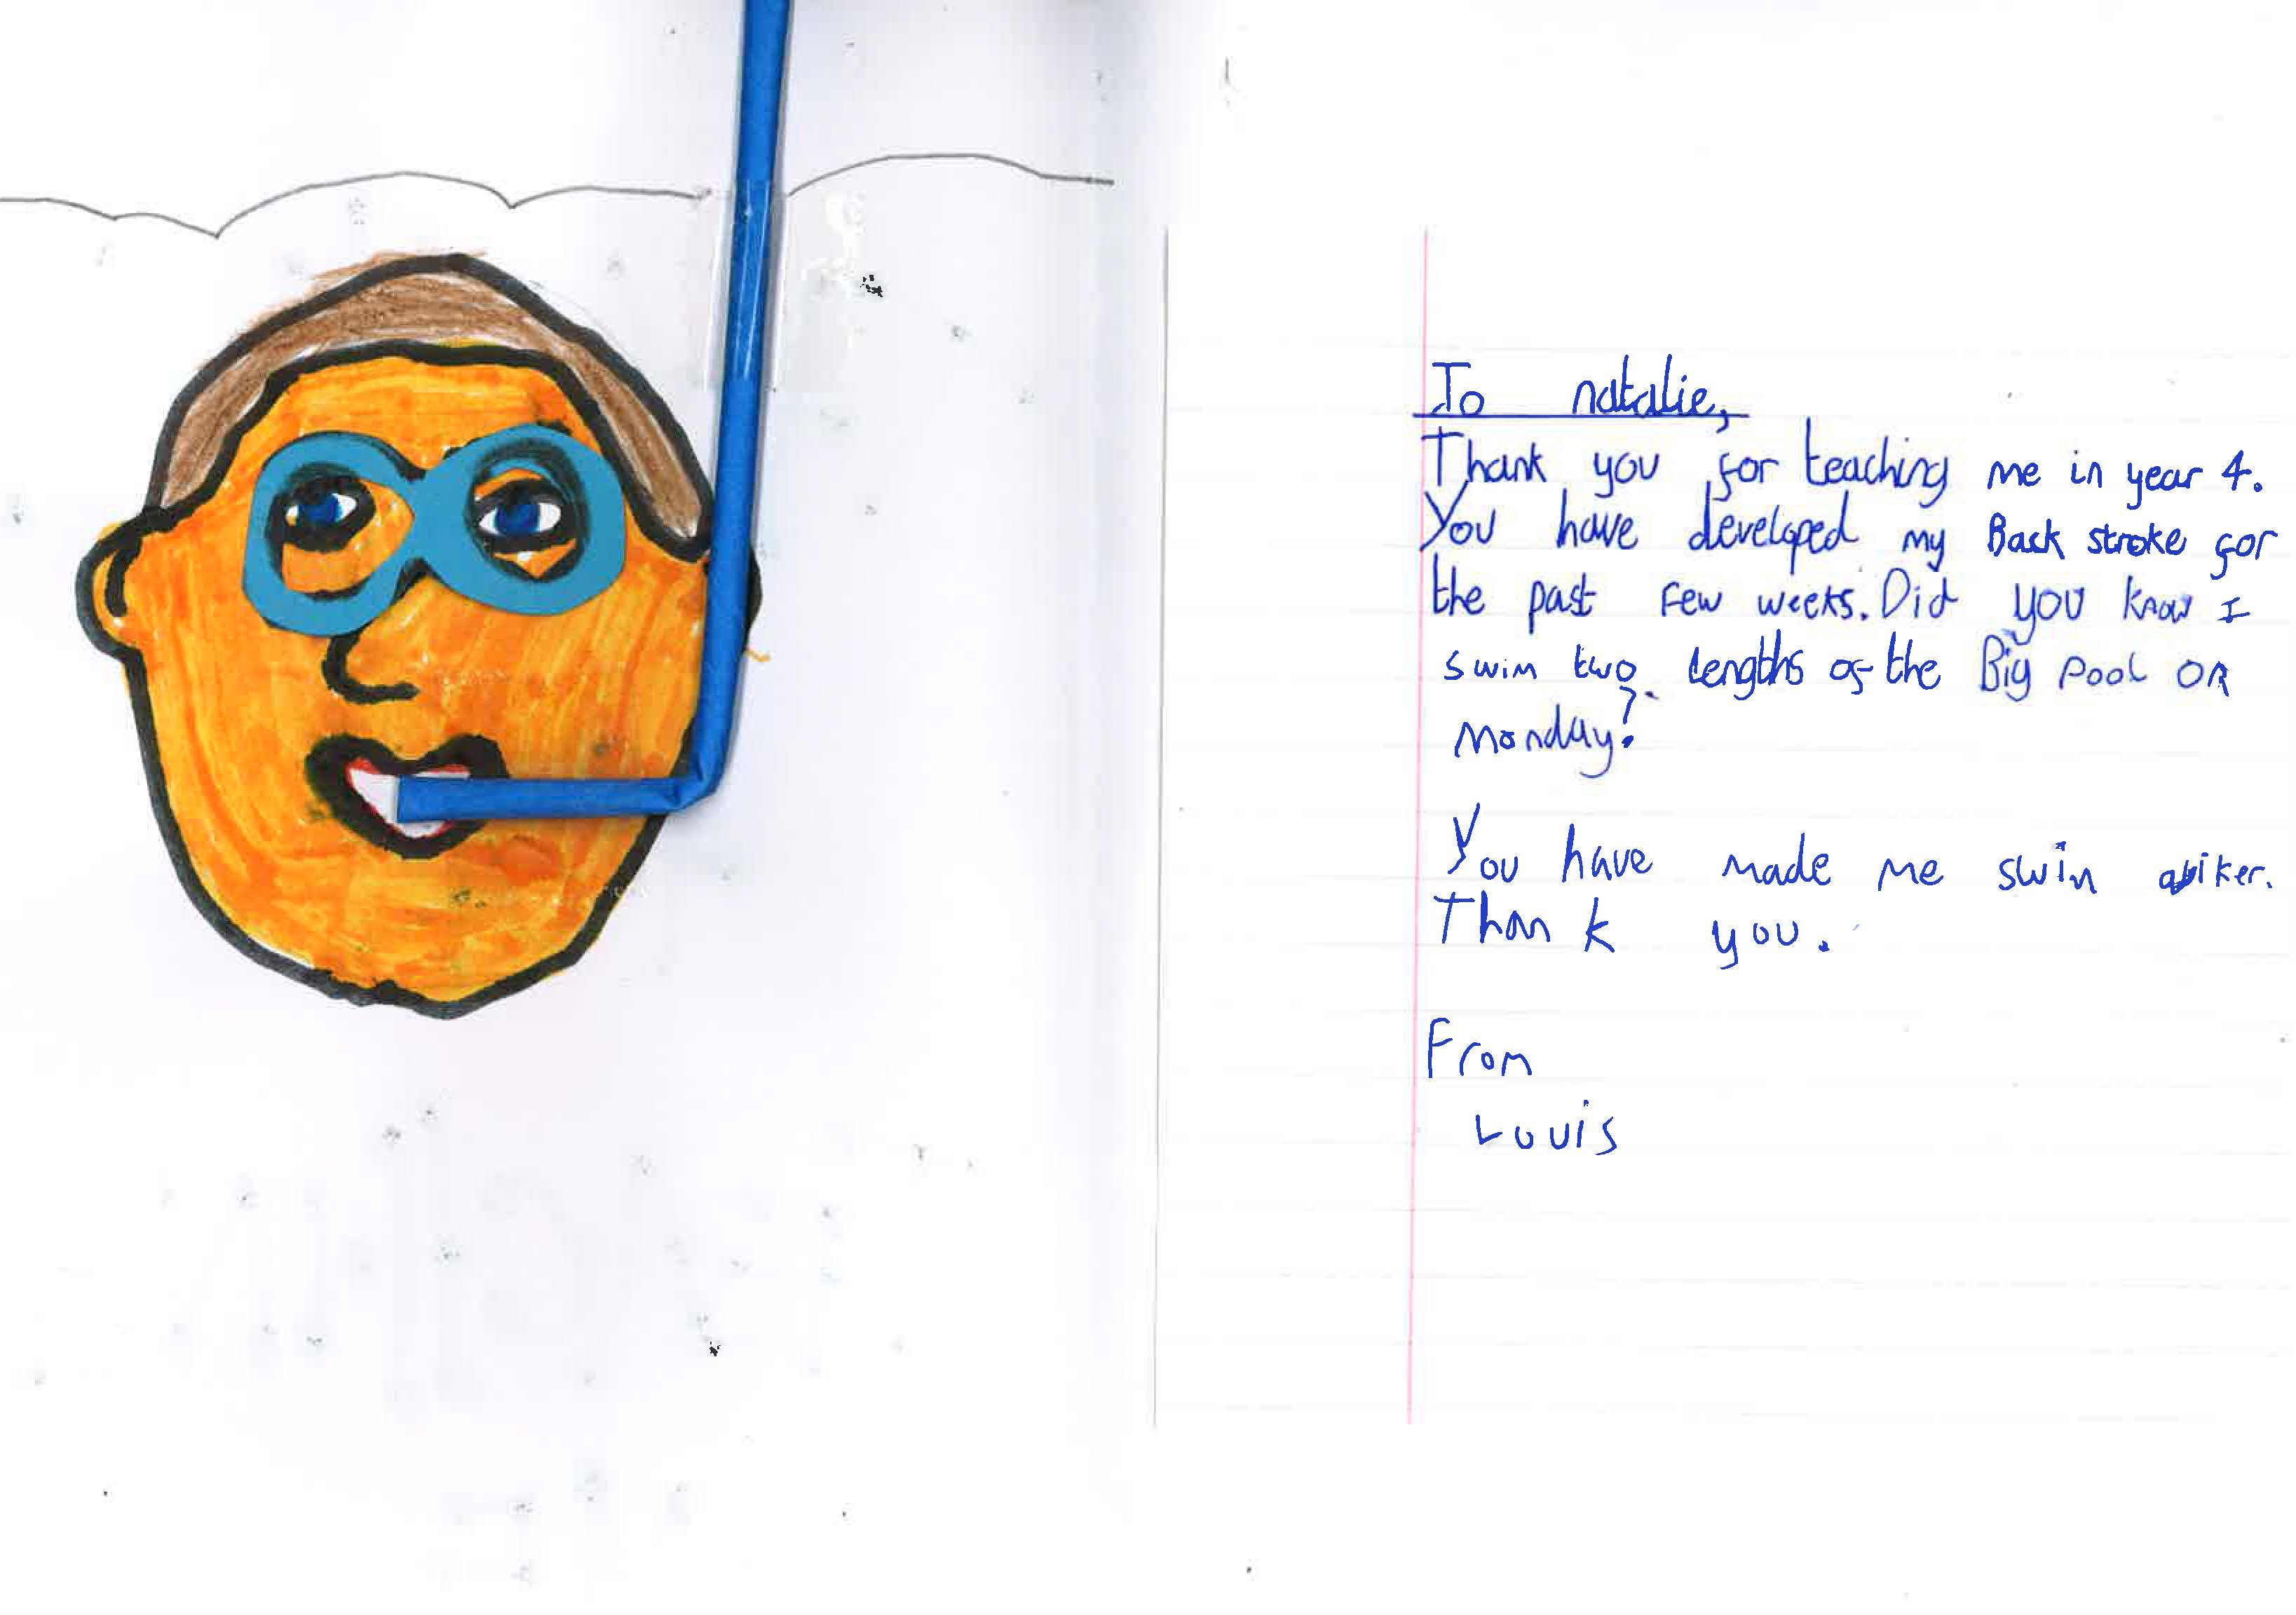 To natalie,
Thank you for teaching me in year 4.
You have developed my Back stroke for
the past few weeks. Did you know I
swim two lengths of the Big pool on
Monday?
You have made me swim quiker.
Thank you.
From
Louis